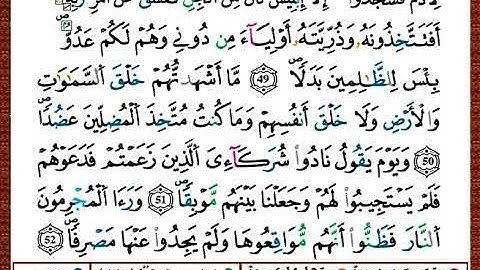 أَفَتَتَّخِذُونَهُۥ وَذُرِّيَّتَهُۥٓ أَوْلِيَآءَ مِن دُونِي وَهُمْ لَكُمْ عَدُوٌّۢ ۚ
بِئْسَ لِلظَّـٰلِمِينَ بَدَلًا ۝49 مَّآ أَشْهَدتُّهُمْ خَلْقَ ٱلسَّمَـٰوَٰتِ
وَٱلْأَرْضِ وَلَا خَلْقَ أَنفُسِهِمْ وَمَا كُنتُ مُتَّخِذَ ٱلْمُضِلِّينَ عَضُدًا
50 وَيَوْمَ يَقُولُ نَادُوا۟ شُرَكَآءِىَ ٱلَّذِينَ زَعَمْتُمْ فَدَعَوْهُمْ
فَلَمْ يَسْتَجِيبُوا۟ لَهُمْ وَجَعَلْنَا بَيْنَهُم مَّوْبِقًا ۝51 وَرَءَا ٱلْمُجْرِمُونَ
ٱلنَّارَ فَظَنُّوٓا۟ أَنَّهُم مُّوَاقِعُوهَا وَلَمْ يَجِدُوا۟ عَنْهَا مَصْرِفًا ۝52